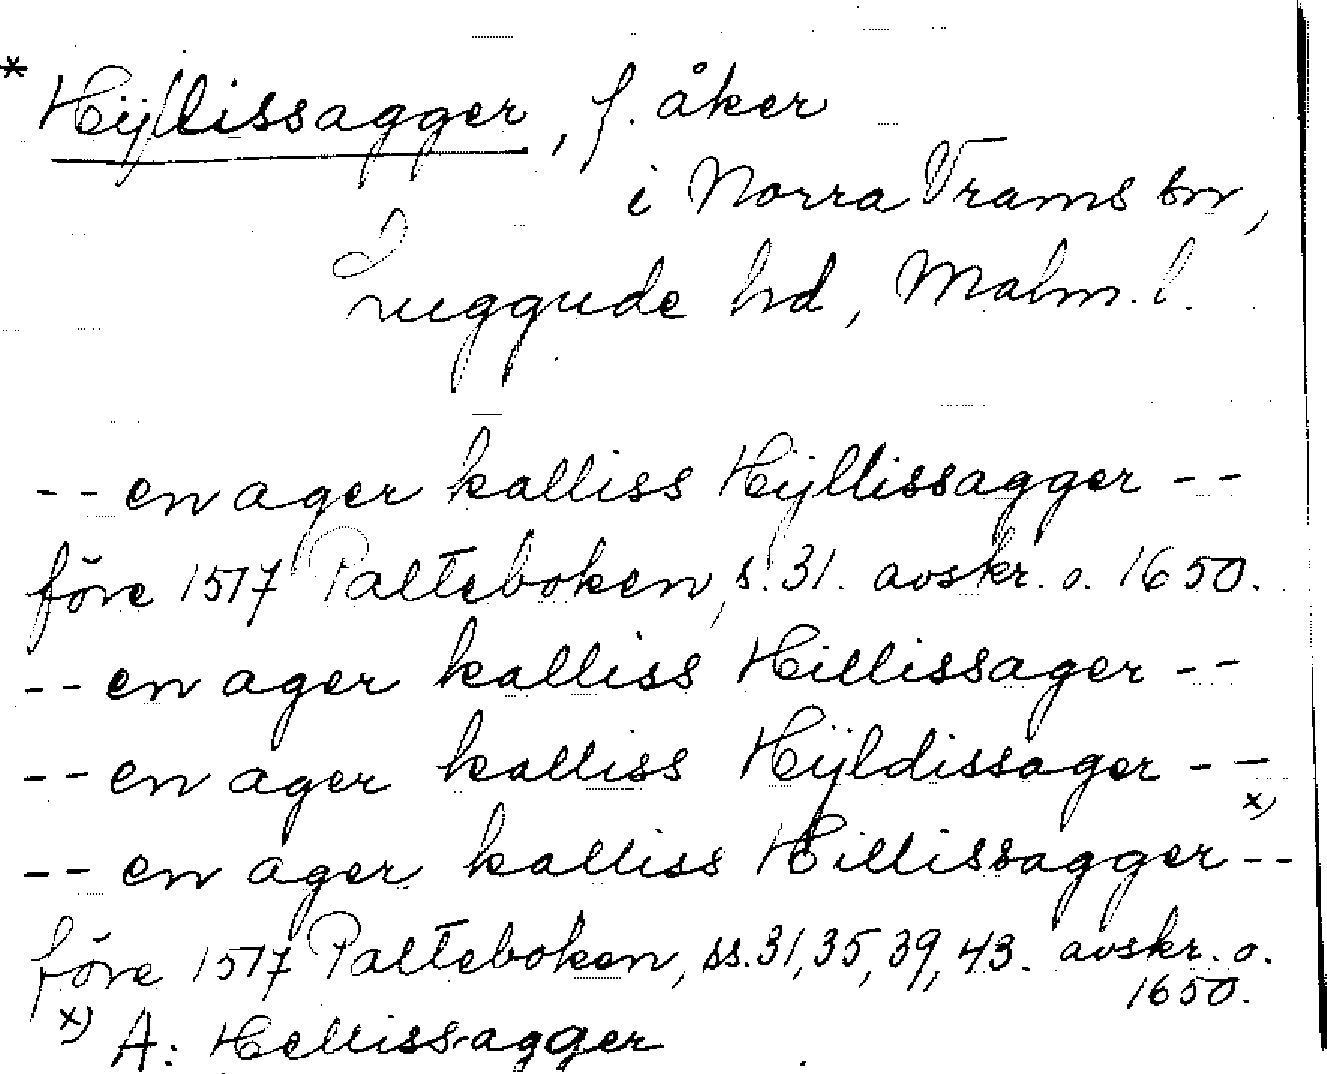 * Hÿllissagger, f. åker
i Norra Vrams sn,
Luggude hd, Malm. l.
-- en ager kalliss Hÿllissagger --
före 1517 Palteboken, s. 31. avskr. o. 1650.
-- en ager kalliss Hillissager --
-- en ager kalliss Hÿldissager --
-- en ager kalliss Hillissagger x) --
före 1517 Palteboken, ss. 31, 35, 39, 43. avskr. o.
1650.
x) A: Hellissagger